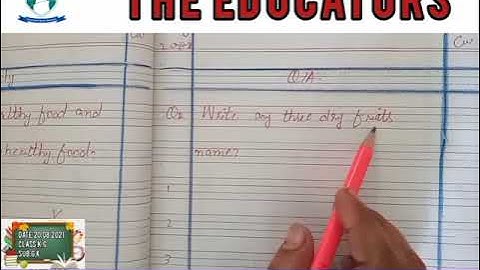 THE EDUCATORS
Cw
Cw
Q/A.
lthy food and
Q2 Write any three dry fruits
healthy food.
name?
1
2
3
DATE:20.08.2021
CLASS:K.G
SUB:G.K